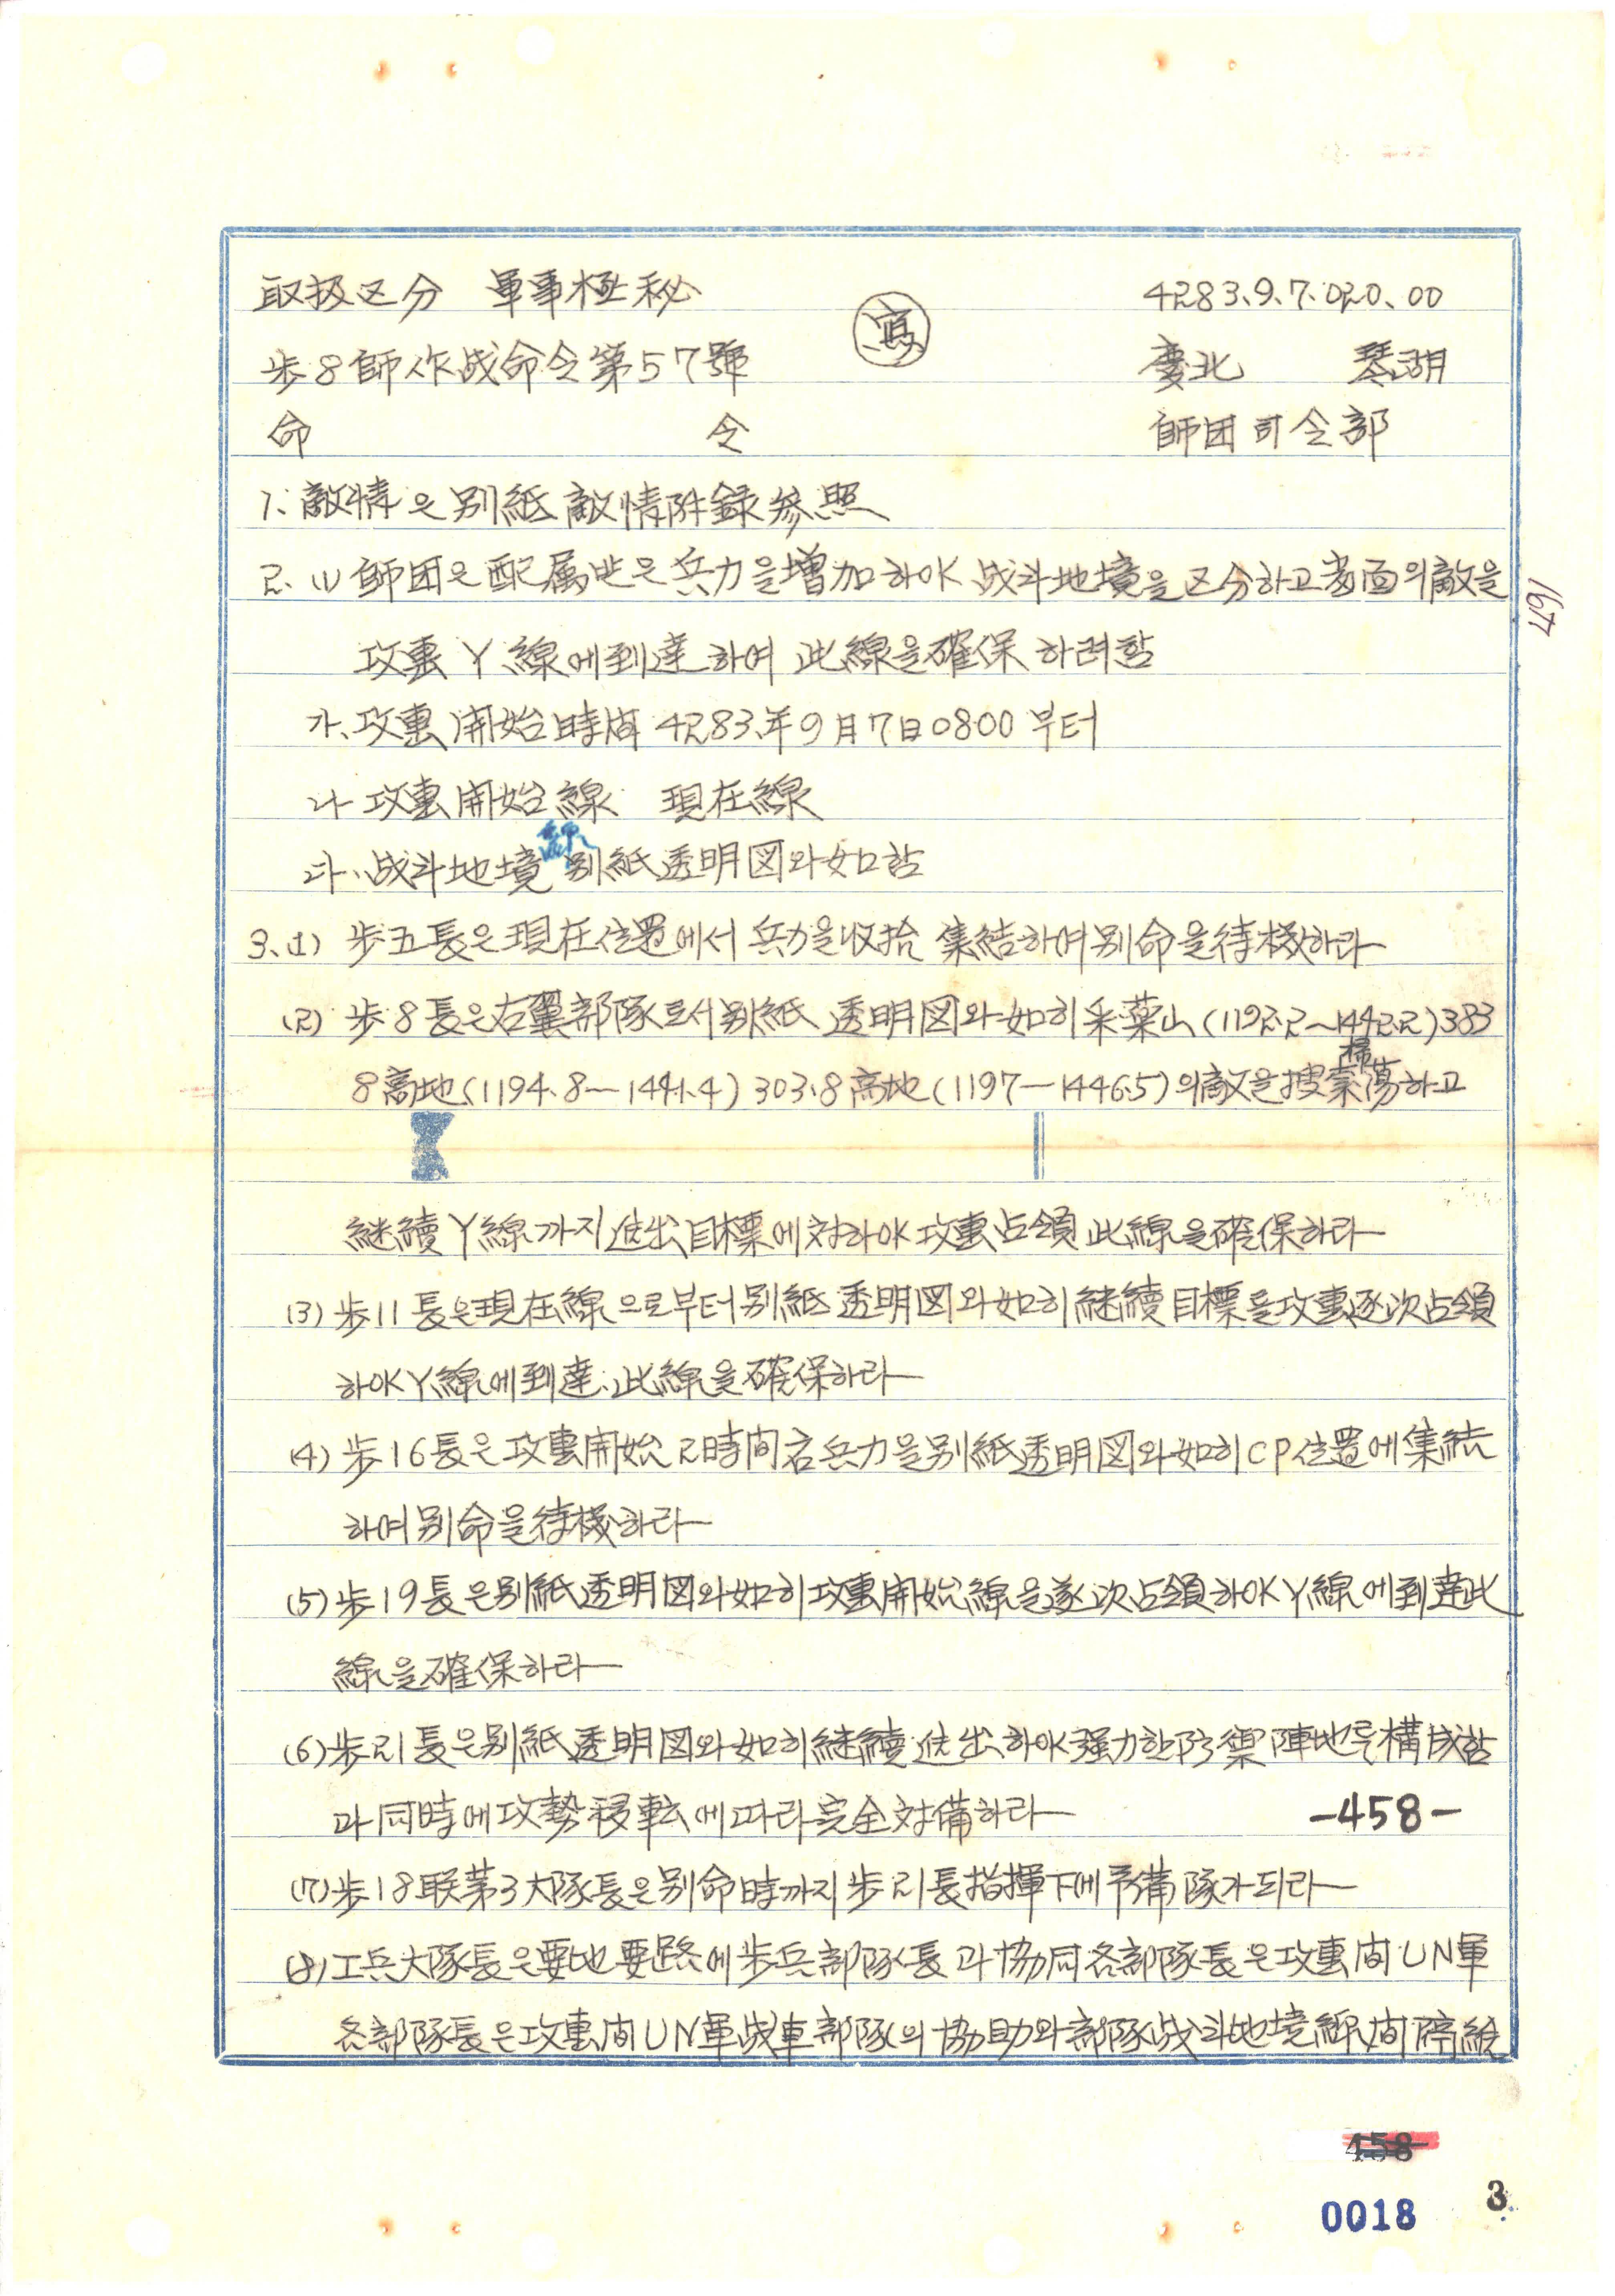 取扱区分 軍事極秘
4283.9.7.020.00
寫
歩8師作战命令第57號
慶北 琴湖
命 令
師団司令部
1. 敵情은 別紙 敵情附録参照
2. (1) 師団은 配属받은 兵力을 増加하야 战斗地境을 区分하고 当面의 敵을
167
攻撃 Y 線에 到達하여 此線을 確保 하려함
가. 攻撃 開始時间 4283年9月7日0800 부터
나 攻撃開始線 現在線
다. 战斗地境線 別紙透明図와 如함
3. (1) 歩五長은 現在位置에서 兵力을 収拾 集結하여 別命을 待機하라
(2) 歩8長은 右翼部隊로서 別紙 透明図와 如히 采葉山 (1192.2~1442.2) 383
8高地 (1194.8-1441.4) 303.8高地 (1197-1446.5)의 敵을 捜索掃蕩하고
継續 Y線까지 進出 目標에 対하야 攻撃占領 此線을 確保하라
(3) 歩11長은 現在線으로부터 別紙 透明図와 如히 継續 目標을 攻撃 逐次占領
하야 Y線에 到達 此線을 確保하라
(4) 歩16長은 攻撃開始 2時間 右兵力을 別紙透明図와 如히 CP位置에 集結
하여 別命을 待機하라
(5) 歩19長은 別紙透明図와 如히 攻撃開始線을 逐次占領하야 Y線에 到達此
線을 確保하라
(6) 歩21長은 別紙透明図와 如히 継續 進出하야 强力한 防禦陣地를 構成함
과 同時에 攻勢移転에 따라 完全対備하라
-458-
(7) 歩18联第3大隊長은 別命時까지 歩21長指揮下에 予備隊가 되라
(8) 工兵大隊長은 要地要路에 歩兵部隊長과 協同 各部隊長은 攻撃间 UN軍
各部隊長은 攻撃间 UN軍战車部隊의 協助와 部隊战斗地境線间
458
0018
3